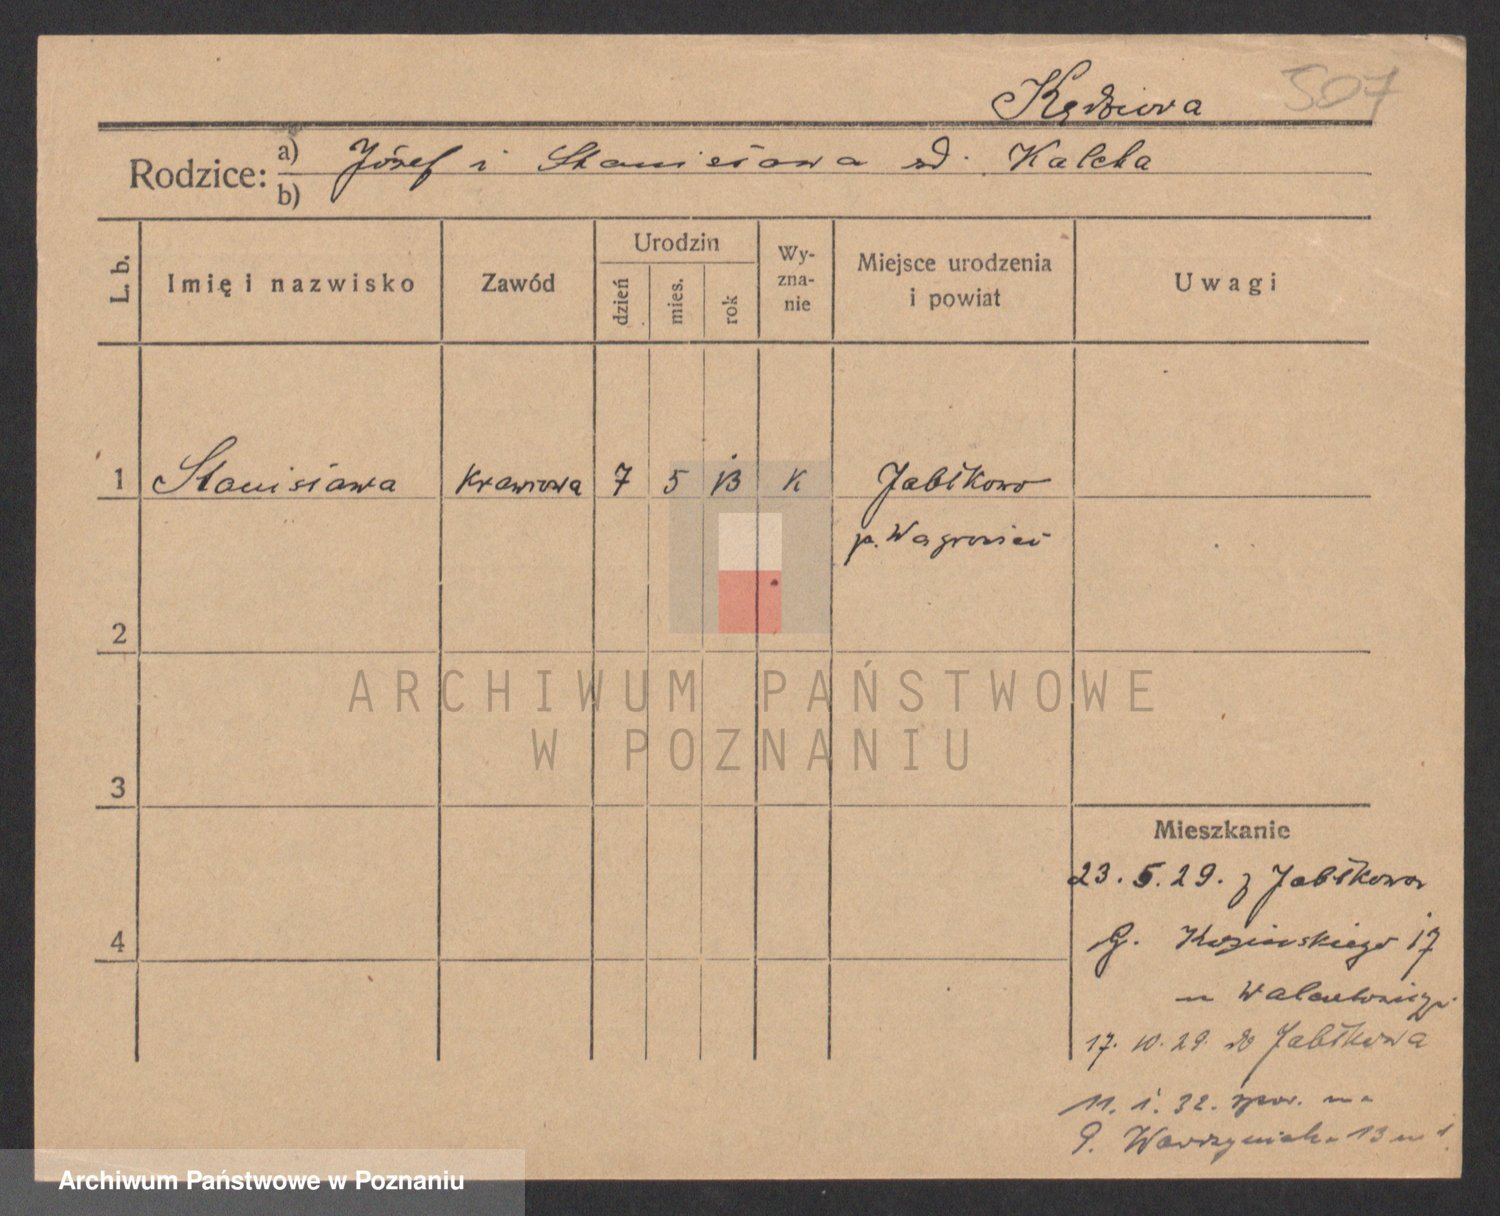 Kędziora 507
Rodzice: a) Józef i Stanisława zd. Kalcka
b)
L. b. Imię i nazwisko Zawód Urodzin Wyznanie Miejsce urodzenia i powiat Uwagi
dzień mies. rok
1 Stanisława Krawcowa 7 5 13 K Jabłkowo
p. Wągrowiec
2
ARCHIWUM PAŃSTWOWE
W POZNANIU
3
Mieszkanie
23. 5. 29. z Jabłkowa
4
G. 17
u
17. 10. 29. do Jabłkowa
11. 1. 32.
G. Wawrzyniaka 13 m 1
Archiwum Państwowe w Poznaniu